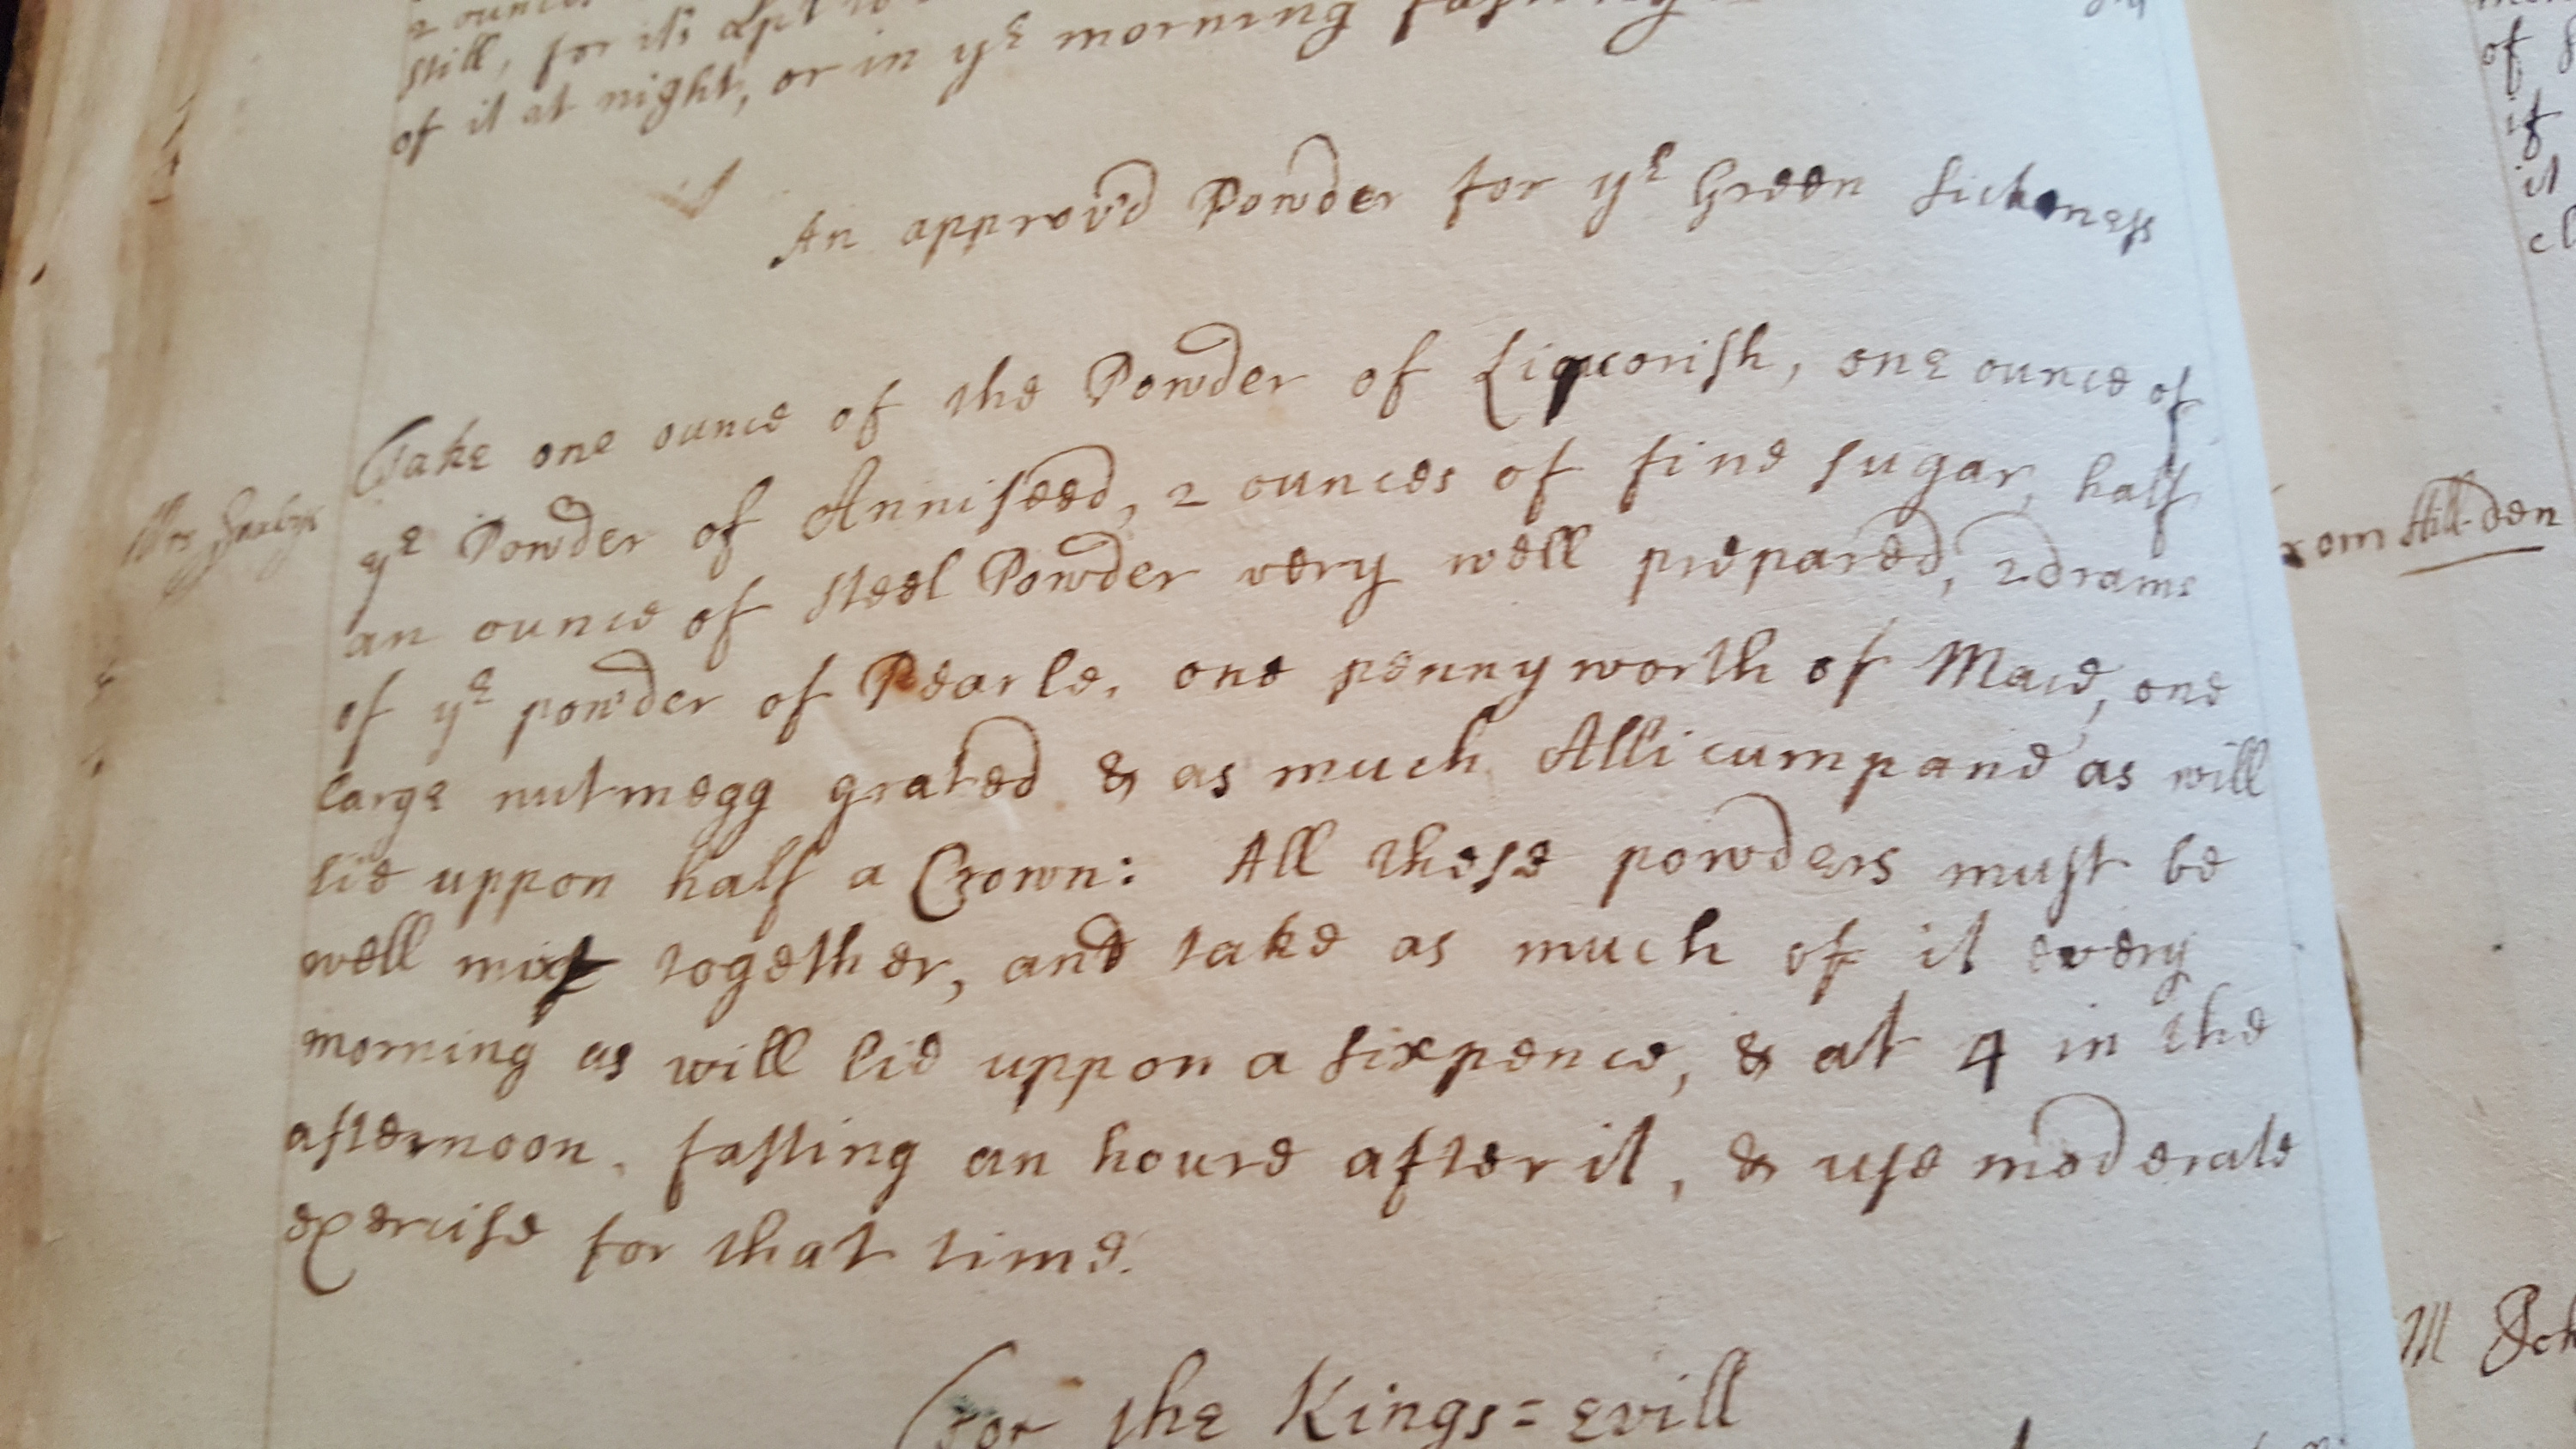 2 ounces
still, for it's apt to
of it at night, or in yᵉ morning fasting
An approv'd Powder for yᵉ Green Sickness
Take one ounce of the Powder of Liquorish, one ounce of
yᵉ Powder of Anniseed, 2 ounces of fine sugar, half
an ounce of steel Powder very well prepared, 2 drams
of yᵉ powder of Pearle, one pennyworth of Mace, one
large nutmegg grated & as much Allicumpane as will
lie uppon half a Crown: All these powders must be
well mixt together, and take as much of it every
morning as will lie uppon a sixpence, & at 4 in the
afternoon, fasting an houre after it, & use moderate
exercise for that time.
For the Kings=evill
Mrs
of
if
it
cl
om Hill-den
M Sch